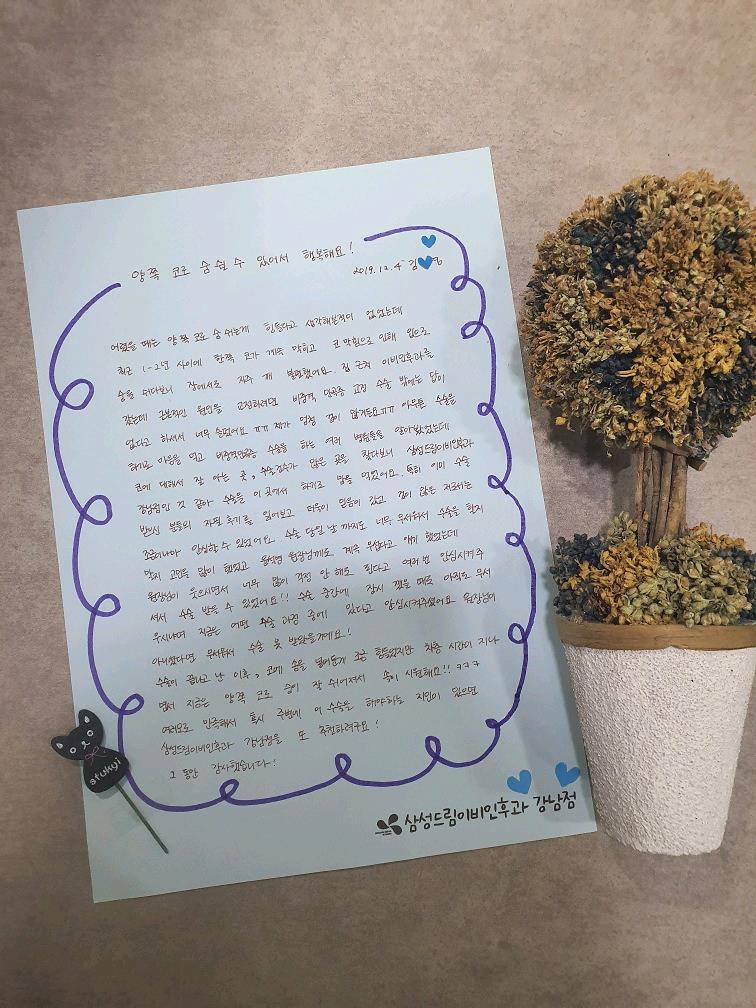 양쪽 코로 숨쉴 수 있어서 행복해요!
2019.12.4 김
어렸을 때는 양쪽 코로 숨쉬는게 힘들다고 생각해본적이 없었는데
최근 1-2년 사이에 한쪽 코가 계속 막히고 코 막힘으로 인해 입으로
숨을 쉬다보니 잠에서도 자주 깨 불편했어요. 집 근처 이비인후과를
갔는데 근본적인 원인을 교정하려면 비중격 만곡증 교정 수술 밖에는 답이
없다고 하셔서 너무 슬펐어요 ㅠㅠ 제가 엄청 겁이 많거든요ㅠㅠ 아무튼 수술을
하기로 마음을 먹고 비중격만곡증 수술을 하는 여러 병원들을 알아봤었는데
코에 대해서 잘 아는 곳, 수술건수가 많은 곳을 찾다보니 삼성드림이비인후과
강남점인 것 같아 수술을 이 곳에서 하기로 맘을 먹었어요. 특히 이미 수술
받으신 분들의 자필 후기를 읽어보고 더욱이 믿음이 갔고 겁이 많은 저로서는
조금이나마 안심할 수 있었어요. 수술 당일 날 까지도 너무 무서워서 수술을 할지
말지 고민을 많이 했었고 원장님께도 계속 무섭다고 얘기 했었는데
원장님이 웃으시면서 너무 많이 걱정 안 해도 된다고 여러번 안심시켜주
셔서 수술 받을 수 있었어요!! 수술 중간에 잠시 깼을 때도 아직도 무서
우시냐며 지금은 어떤 수술 과정 중에 있다고 안심시켜주셨어요 원장님이
아니셨다면 무서워서 수술 못 받았을거에요!
수술이 끝나고 난 이후, 코에 솜을 넣어둔게 조금 힘들었지만 차츰 시간이 지나
면서 지금은 양쪽 코로 숨이 잘 쉬어져서 속이 시원해요!! ㅋㅋㅋ
여러모로 만족해서 혹시 주변에 이 수술을 해야하는 지인이 있으면
삼성드림이비인후과 강남점을 또 추천하려구요!
그 동안 감사했습니다!
stukyi
삼성드림이비인후과 강남점